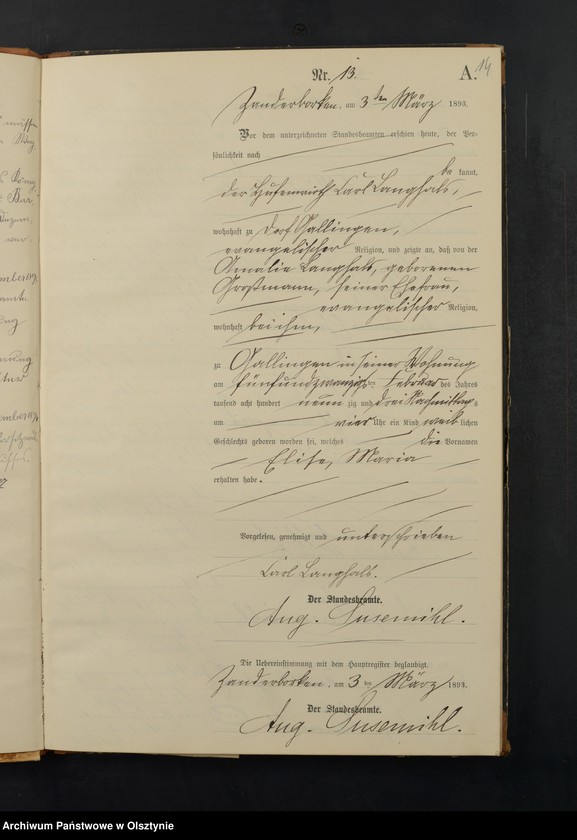 Nr. 13.
A. 14
Zanderborken, am 3ten März 1893.
Vor dem unterzeichneten Standesbeamten erschien heute, der Per-
sönlichkeit nach
be kannt,
der Hufenwirth Carl Langhals,
wohnhaft zu Dorf Gallingen,
evangelischer Religion, und zeigte an, daß von der
Amalie Langhals, geborenen
Großmann, seiner Ehefrau,
evangelischer Religion,
wohnhaft bei ihm,
zu Gallingen in seiner Wohnung
am fünfundzwanzigsten Februar des Jahres
tausend acht hundert neun zig und drei Nachmittags
um vier Uhr ein Kind weib lichen
Geschlechts geboren worden sei, welches die Vornamen
Elise, Maria
erhalten habe.
Vorgelesen, genehmigt und unterschrieben
Carl Langhals.
Der Standesbeamte.
Aug. Susemihl.
Die Uebereinstimmung mit dem Hauptregister beglaubigt.
Zanderborken, am 3ten März 1893.
Der Standesbeamte.
Aug. Susemihl.
Archiwum Państwowe w Olsztynie